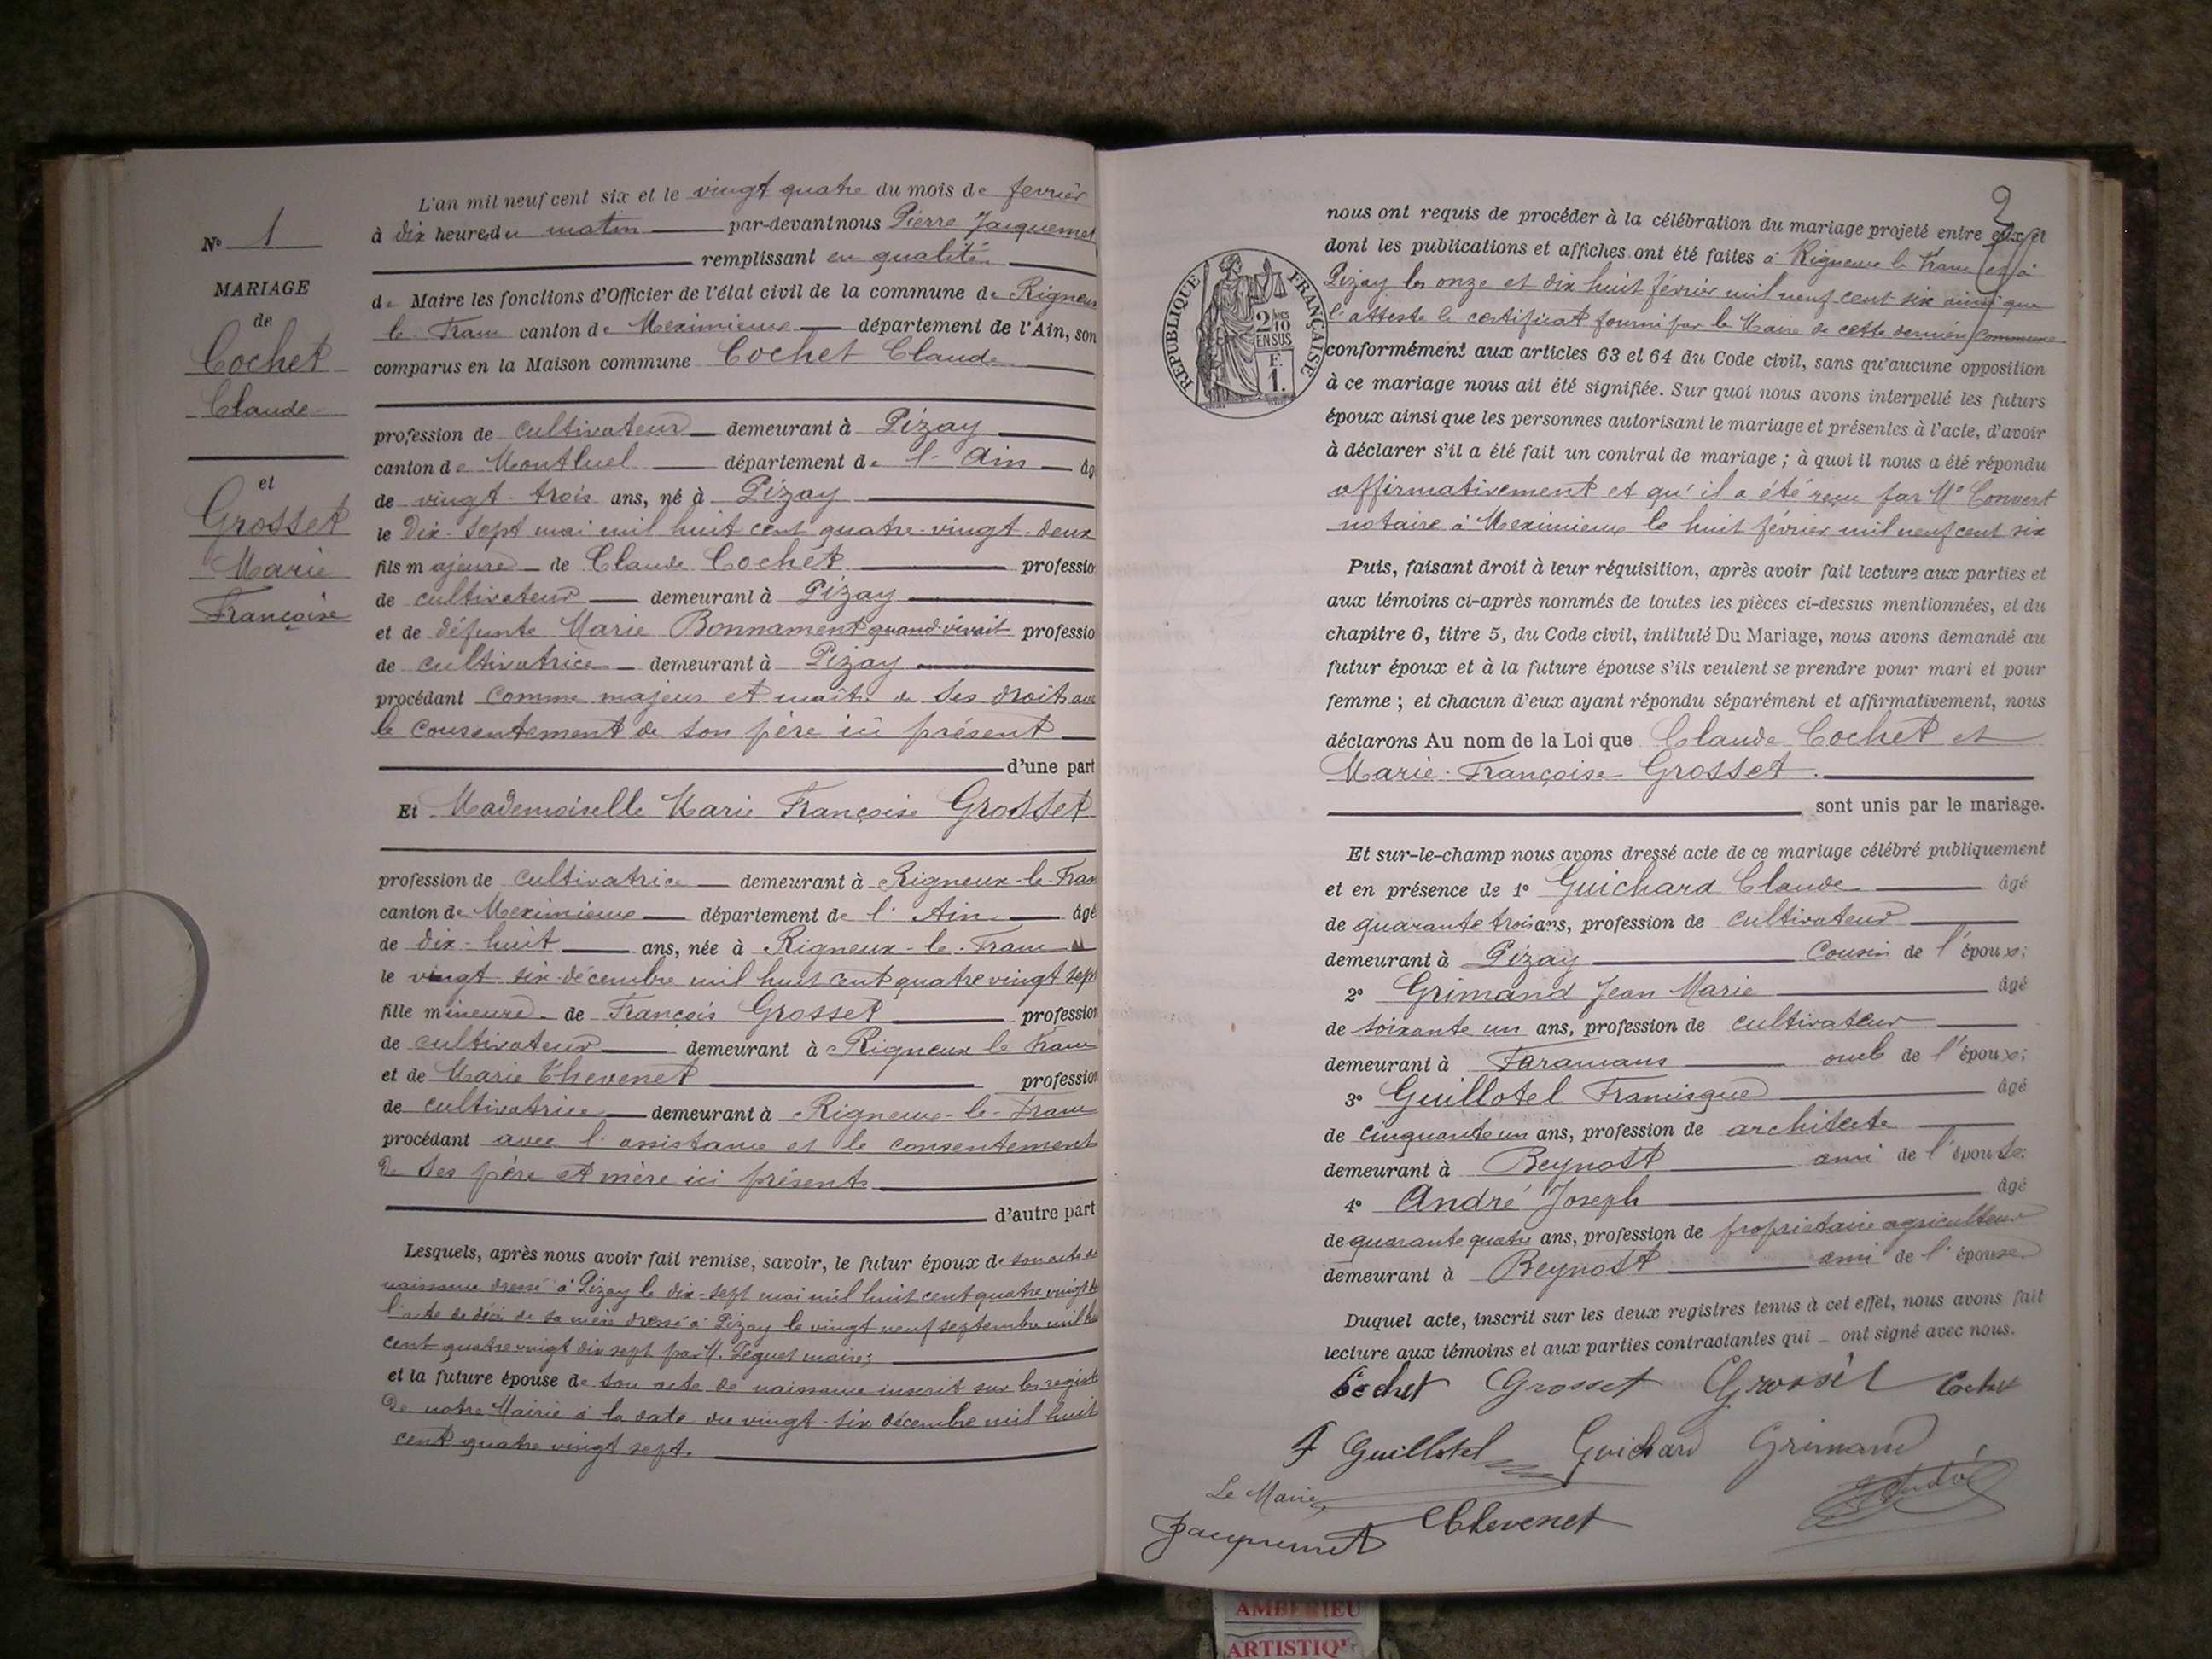 N° 1
MARIAGE
de
Cochet
Claude
et
Grosset
Marie
Françoise
L'an mil neuf cent six et le vingt quatre du mois de fevrier
à dix heures du matin par-devant nous Pierre Jacquemet
remplissant en qualité
de Maire les fonctions d'Officier de l'état civil de la commune de Rigneux
le Franc canton de Meximieux département de l'Ain, son
comparus en la Maison commune Cochet Claude
profession de cultivateur demeurant à Pizay
canton de Montluel département de l'Ain âg
de vingt-trois ans, né à Pizay
le dix-sept mai mil huit cent quatre-vingt-deux
fils majeur de Claude Cochet professio
de cultivateur demeurant à Pizay
et de défunte Marie Bonnament quand vivait professio
de cultivatrice demeurant à Pizay
procédant comme majeur et maître de ses droits avec
le consentement de son père ici présent
d'une part
Et Mademoiselle Marie Françoise Grosset
profession de cultivatrice demeurant à Rigneux-le-Fran
canton de Meximieux département de l'Ain âgé
de dix-huit ans, née à Rigneux-le-Franc
le vingt six décembre mil huit cent quatre vingt sept
fille mineure de François Grosset profession
de cultivateur demeurant à Rigneux le Franc
et de Marie Thevenet profession
de cultivatrice demeurant à Rigneux-le-Franc
procédant avec l'assistance et le consentement
de ses père et mère ici présents
d'autre part
Lesquels, après nous avoir fait remise, savoir, le futur époux de son acte de
naissance dressé à Pizay le dix-sept mai mil huit cent quatre vingt de
l'acte de décès de sa mère dressé à Pizay le vingt neuf septembre mil hu
cent quatre vingt dix sept par M. Peguet maire;
et la future épouse de son acte de naissance inscrit sur les regist
de notre Mairie à la date du vingt-six décembre mil huit
cent quatre vingt sept.
2
nous ont requis de procéder à la célébration du mariage projeté entre eux et
dont les publications et affiches ont été faites à Rigneux le Franc et à
Pizay les onze et dix huit février mil neuf cent six ainsi que
l'atteste le certificat fourni par le Maire de cette dernière commune
conformément aux articles 63 et 64 du Code civil, sans qu'aucune opposition
à ce mariage nous ait été signifiée. Sur quoi nous avons interpellé les futurs
époux ainsi que les personnes autorisant le mariage et présentes à l'acte, d'avoir
à déclarer s'il a été fait un contrat de mariage; à quoi il nous a été répondu
affirmativement et qu'il a été reçu par Me Convert
notaire à Meximieux le huit février mil neuf cent six
RÉPUBLIQUE FRANÇAISE
2/10
EN SUS
F.
1.
Puis, faisant droit à leur réquisition, après avoir fait lecture aux parties et
aux témoins ci-après nommés de toutes les pièces ci-dessus mentionnées, et du
chapitre 6, titre 5, du Code civil, intitulé Du Mariage, nous avons demandé au
futur époux et à la future épouse s'ils veulent se prendre pour mari et pour
femme; et chacun d'eux ayant répondu séparément et affirmativement, nous
déclarons Au nom de la Loi que Claude Cochet et
Marie-Françoise Grosset.
sont unis par le mariage.
Et sur-le-champ nous avons dressé acte de ce mariage célébré publiquement
et en présence de 1° Guichard Claude âgé
de quarante trois ans, profession de cultivateur
demeurant à Pizay Cousin de l'époux;
2° Grimand Jean Marie âgé
de soixante un ans, profession de cultivateur
demeurant à Faramans oncle de l'époux;
3° Guillotel Francisque âgé
de cinquante un ans, profession de architecte
demeurant à Beynost ami de l'épouse:
4° André Joseph âgé
de quarante quatre ans, profession de propriétaire agriculteur
demeurant à Beynost ami de l'épouse
Duquel acte, inscrit sur les deux registres tenus à cet effet, nous avons fait
lecture aux témoins et aux parties contractantes qui ont signé avec nous.
Cochet Grosset Grosset Cochet
F Guillotel Guichard Grimand
Le Maire
Jacquemet Thevenet André
AMBERIEU
ARTISTIQ